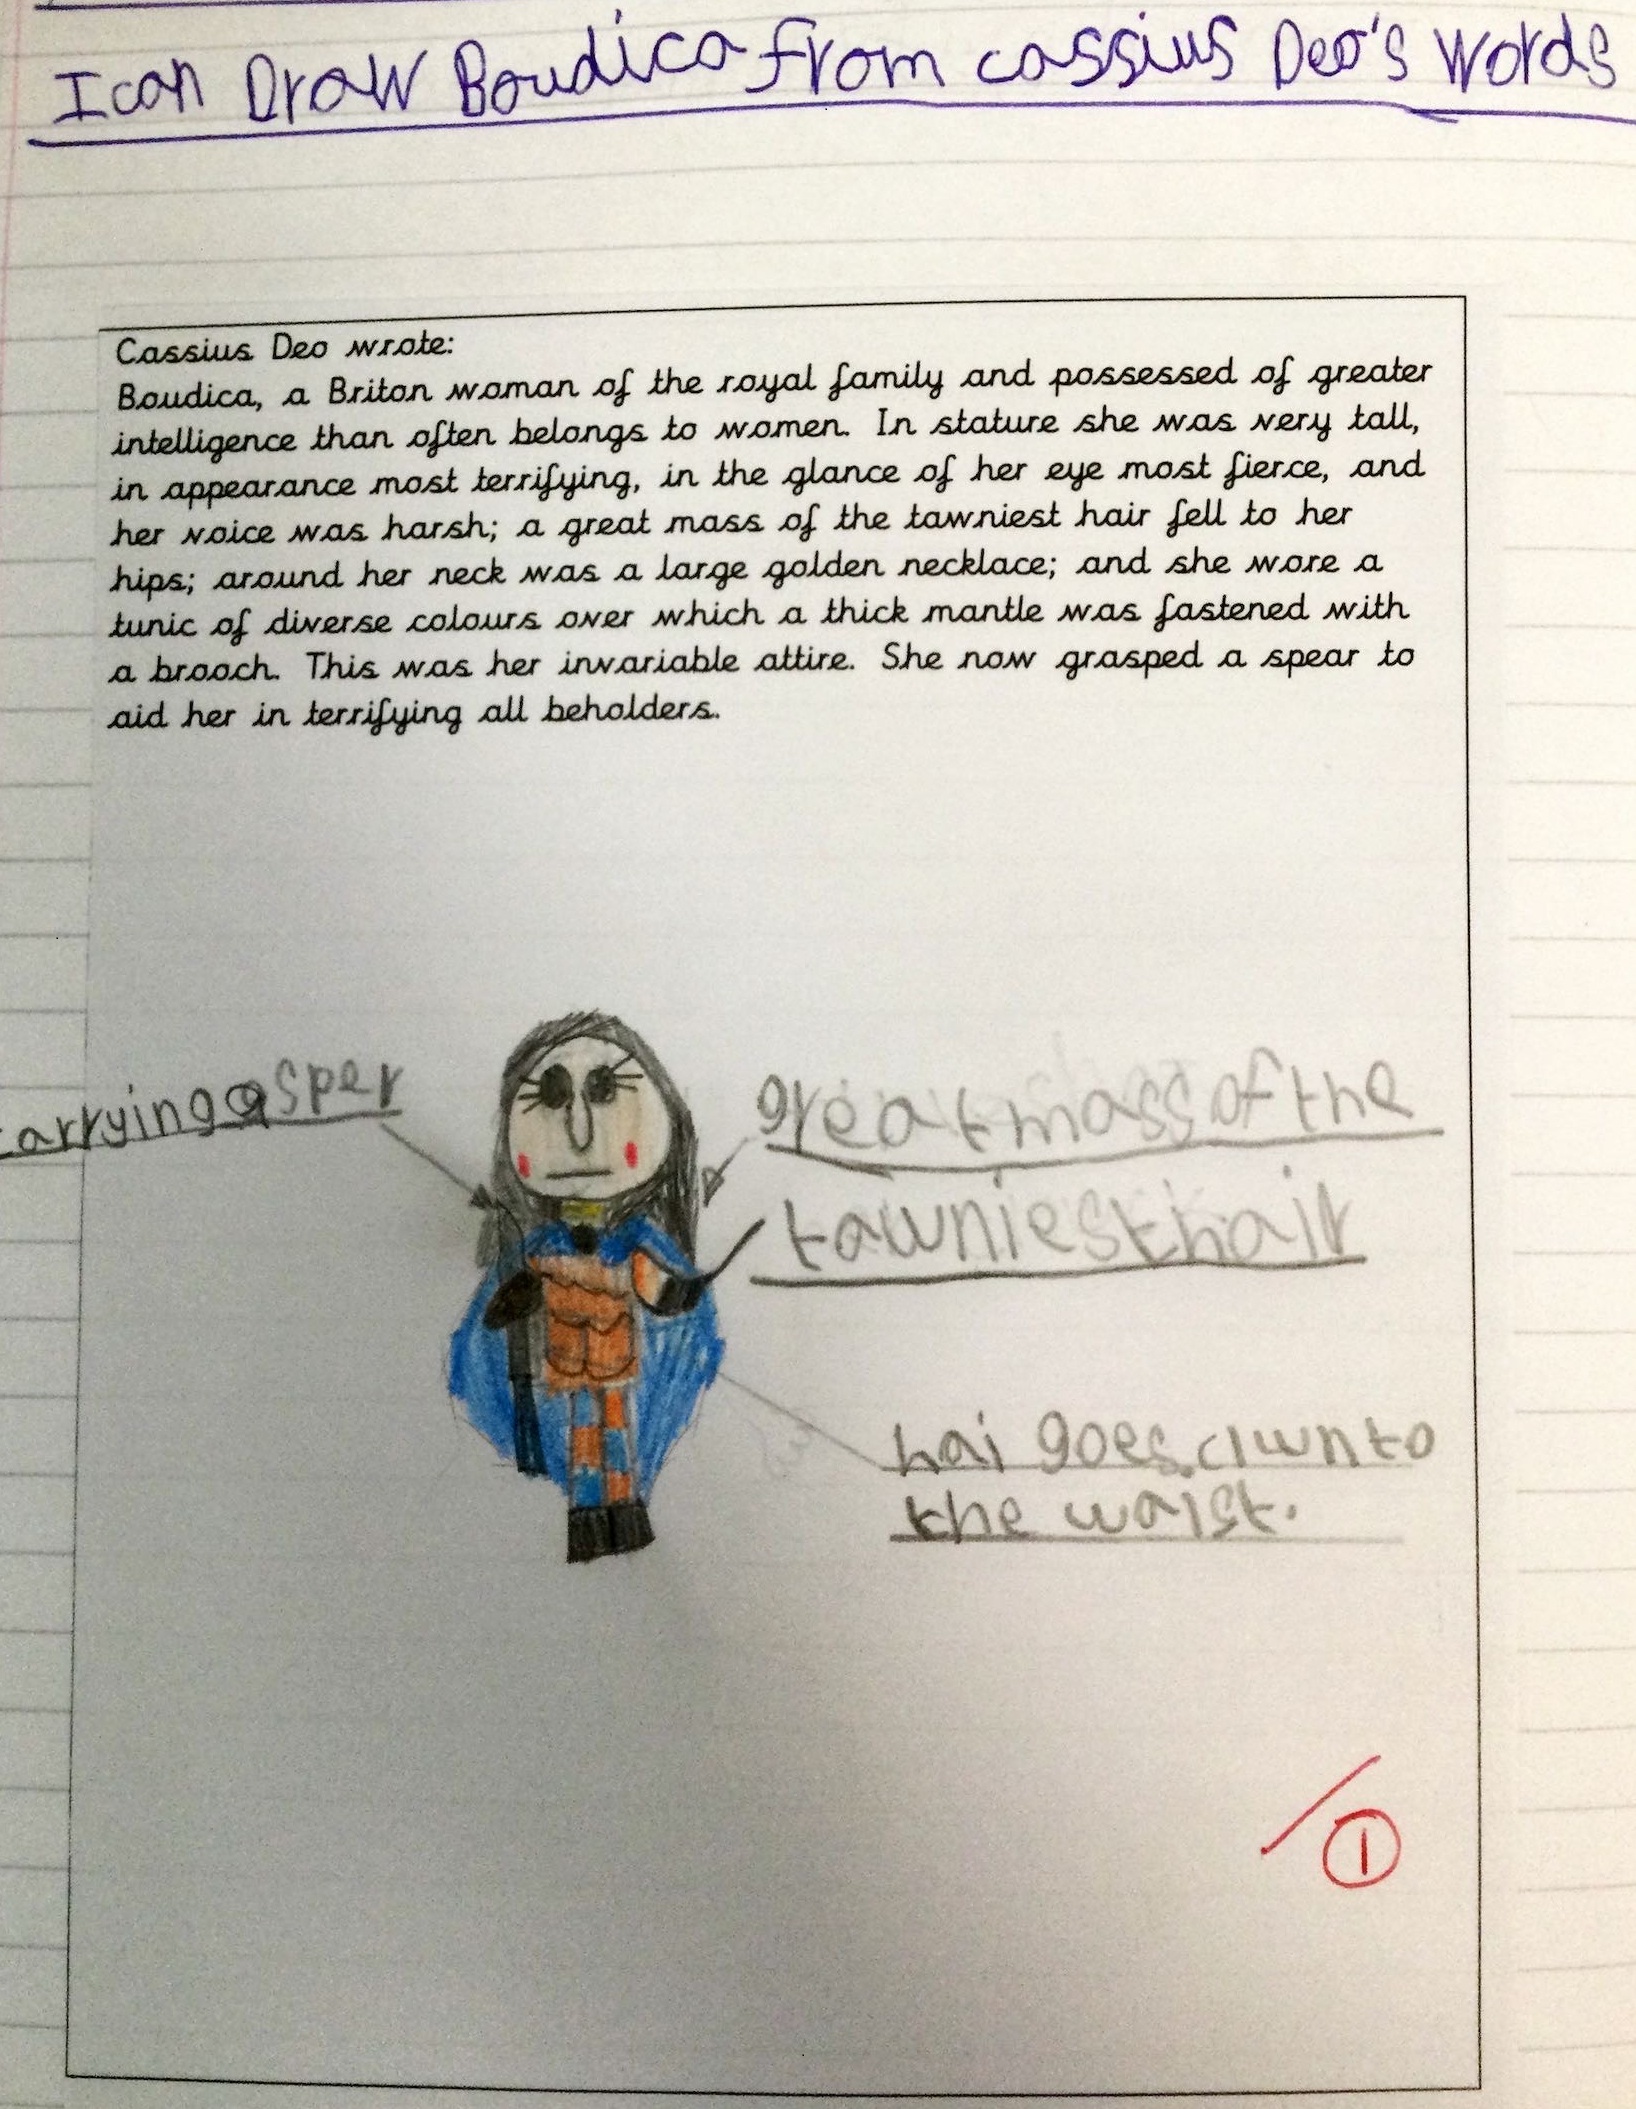 I can Draw Boudica from cassius Deo's words
Cassius Deo wrote:
Boudica, a Briton woman of the royal family and possessed of greater
intelligence than often belongs to women. In stature she was very tall,
in appearance most terrifying, in the glance of her eye most fierce, and
her voice was harsh; a great mass of the tawniest hair fell to her
hips; around her neck was a large golden necklace; and she wore a
tunic of diverse colours over which a thick mantle was fastened with
a brooch. This was her invariable attire. She now grasped a spear to
aid her in terrifying all beholders.
carrying a sper
great mass of the
tawniest hair
hai goes dwn to
the waist.
1